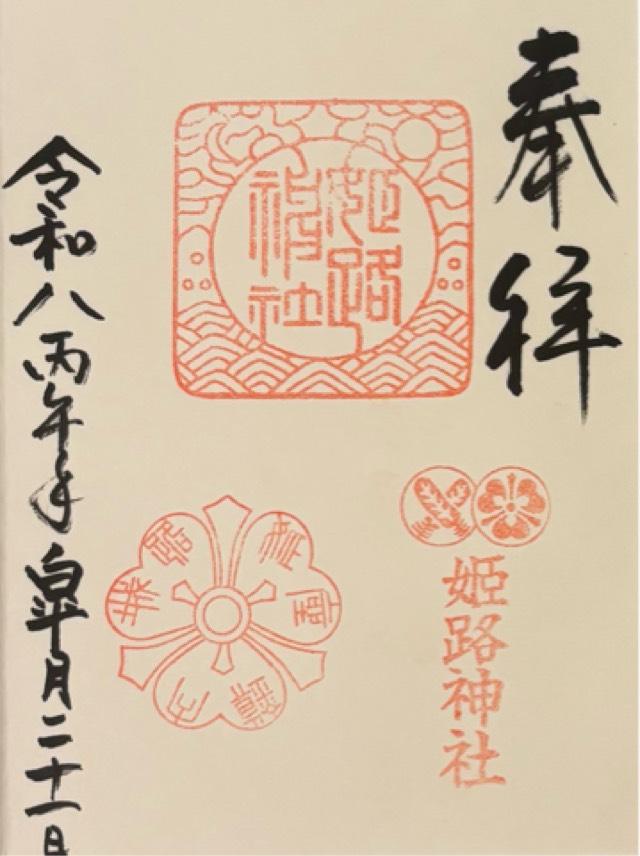 奉拝
姫路
神社
姫路神社
令和八丙午年皐月二十一日